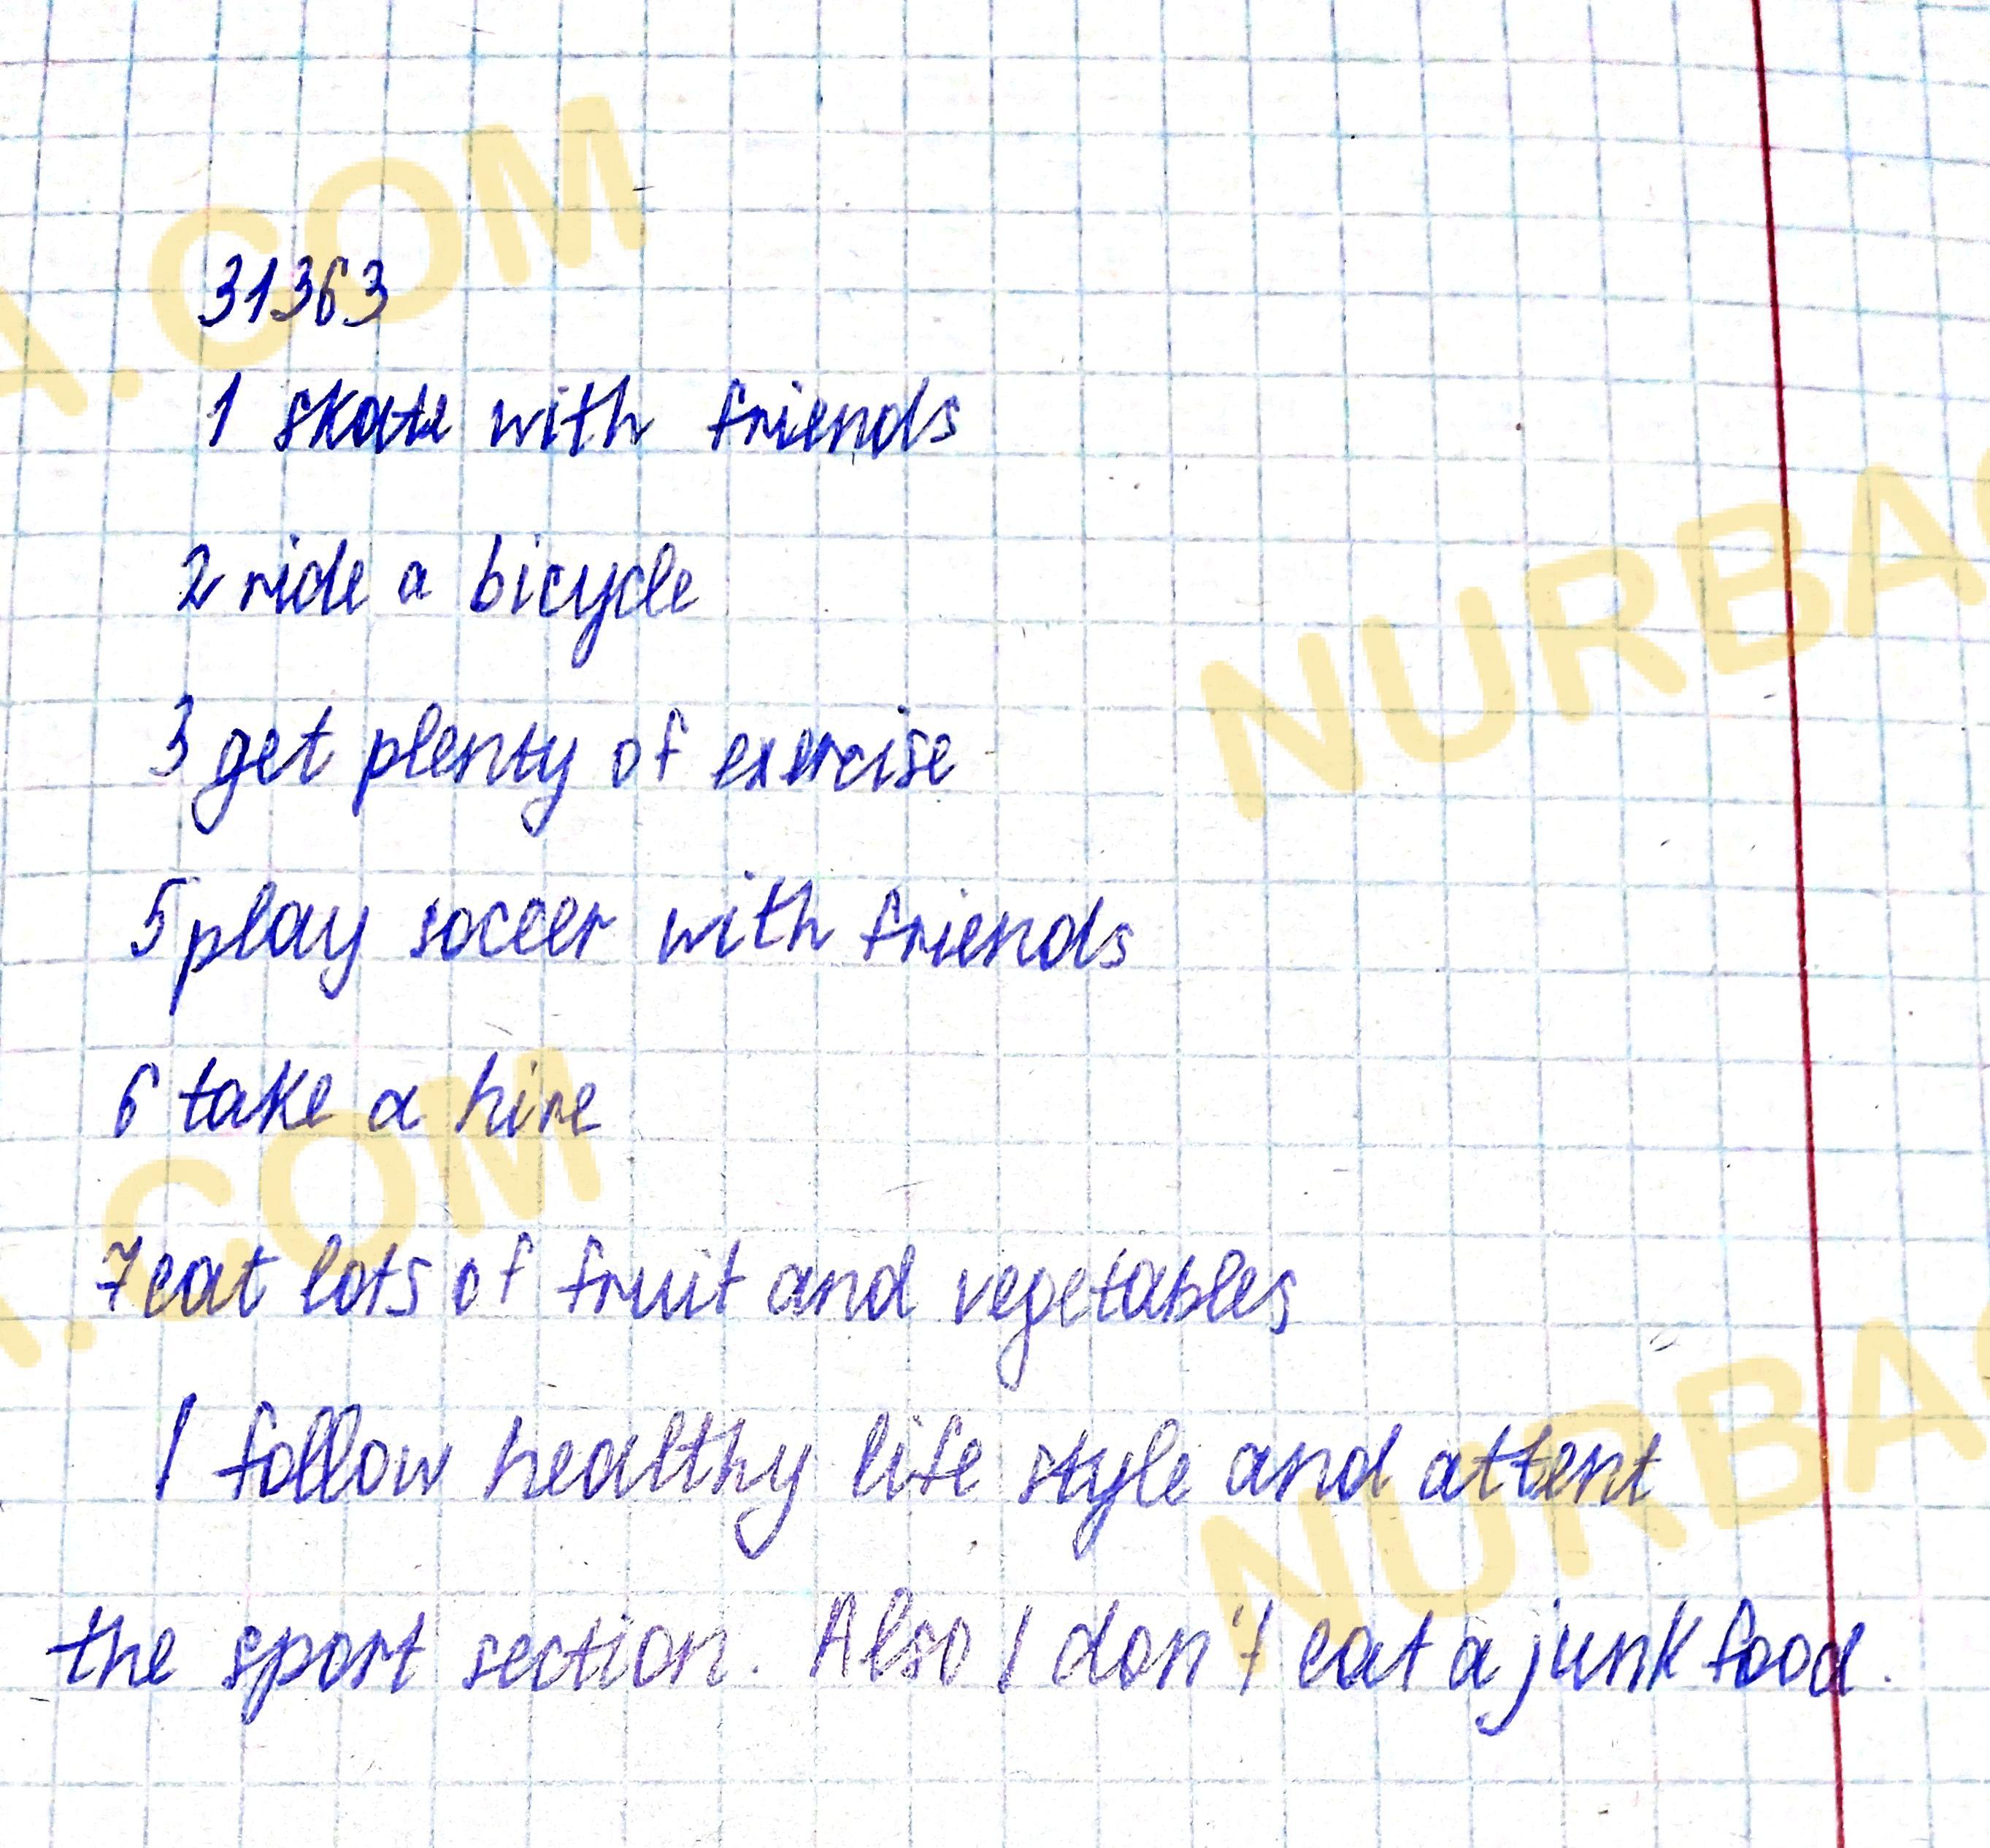 31363
1 skate with friends
2 ride a bicycle
3 get plenty of exercise
5 play soccer with friends
6 take a hire
7 eat lots of fruit and vegetables
I follow healthy life style and attent
the sport section. Also I don't eat a junk food.
A.COM
NURBA
.COM
NURBA